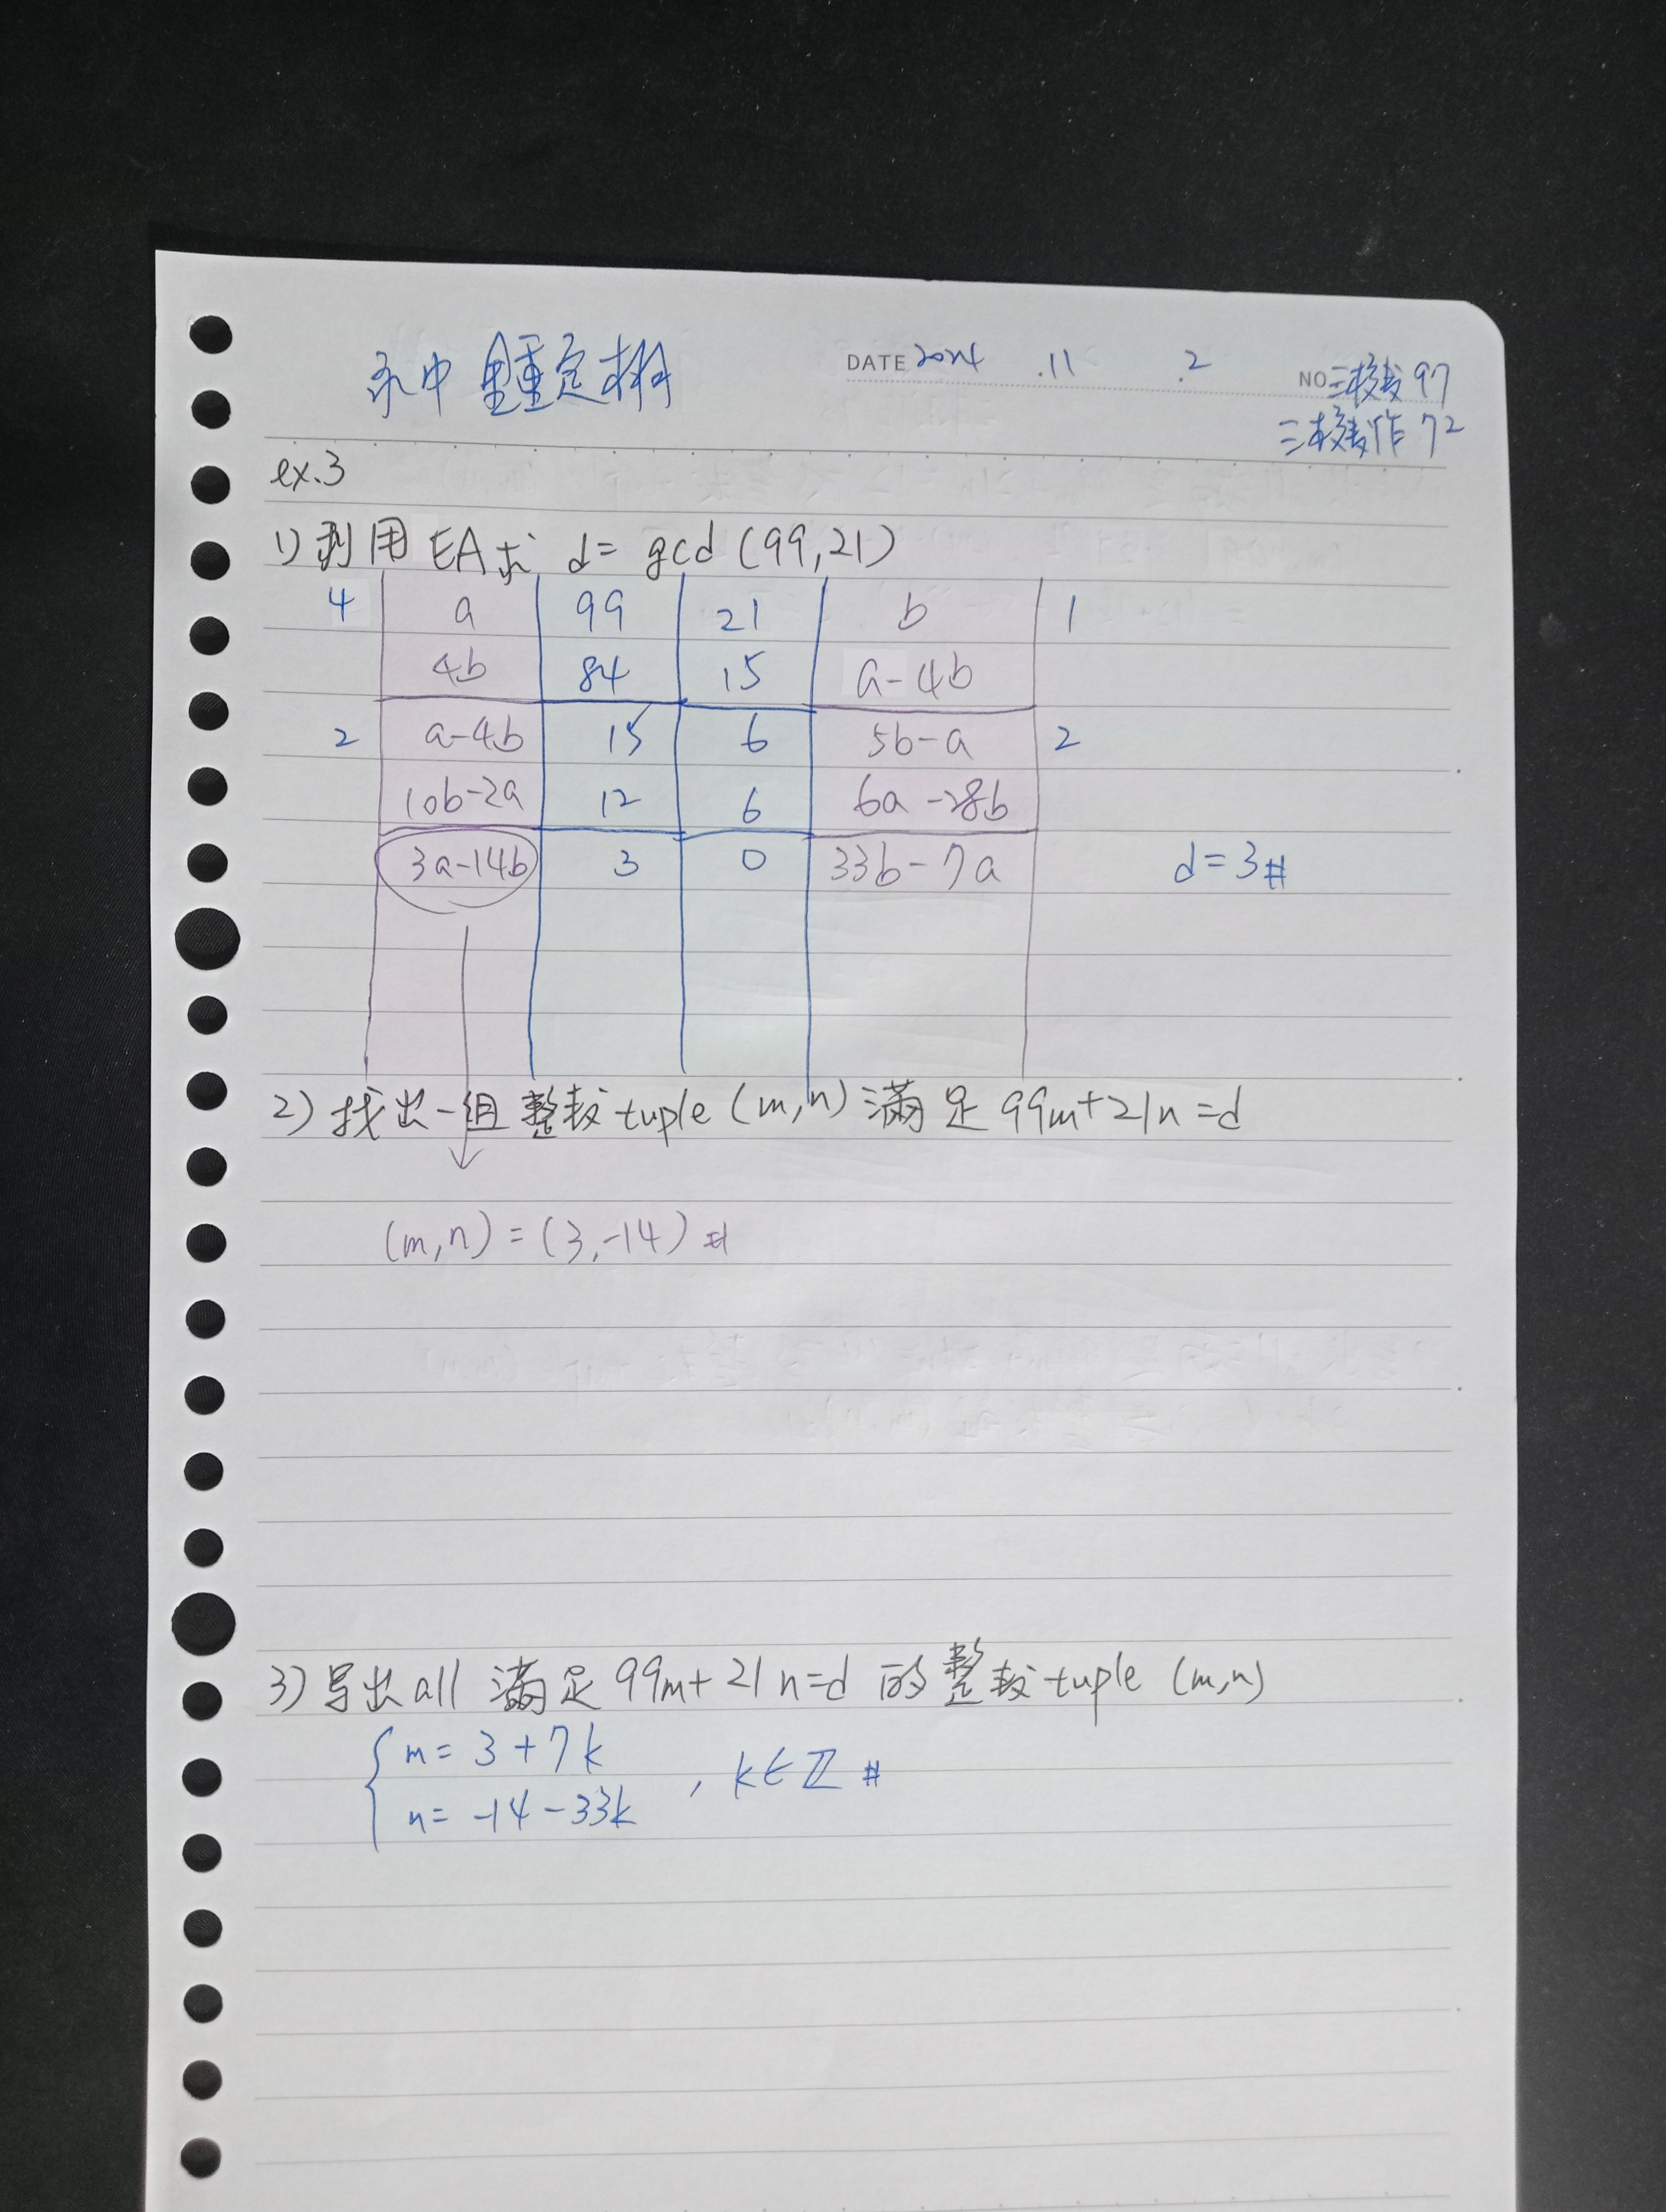 永中 鍾定樹
DATE 2024 .11 .2
NO.三核發97
三核發作72
ex.3
1) 利用 EA求 d= gcd (99,21)
4 a 99 21 b 1
4b 84 15 a-4b
2 a-4b 15 6 5b-a 2
10b-2a 12 6 6a-28b
3a-14b 3 0 33b-7a d=3#
2) 找出一組整數tuple (m,n) 滿足 99m+21n=d
(m,n) = (3,-14) #
3) 导出all 滿足 99m+21n=d 的整數tuple (m,n)
m= 3+7k
, k∈ℤ #
n= -14-33k